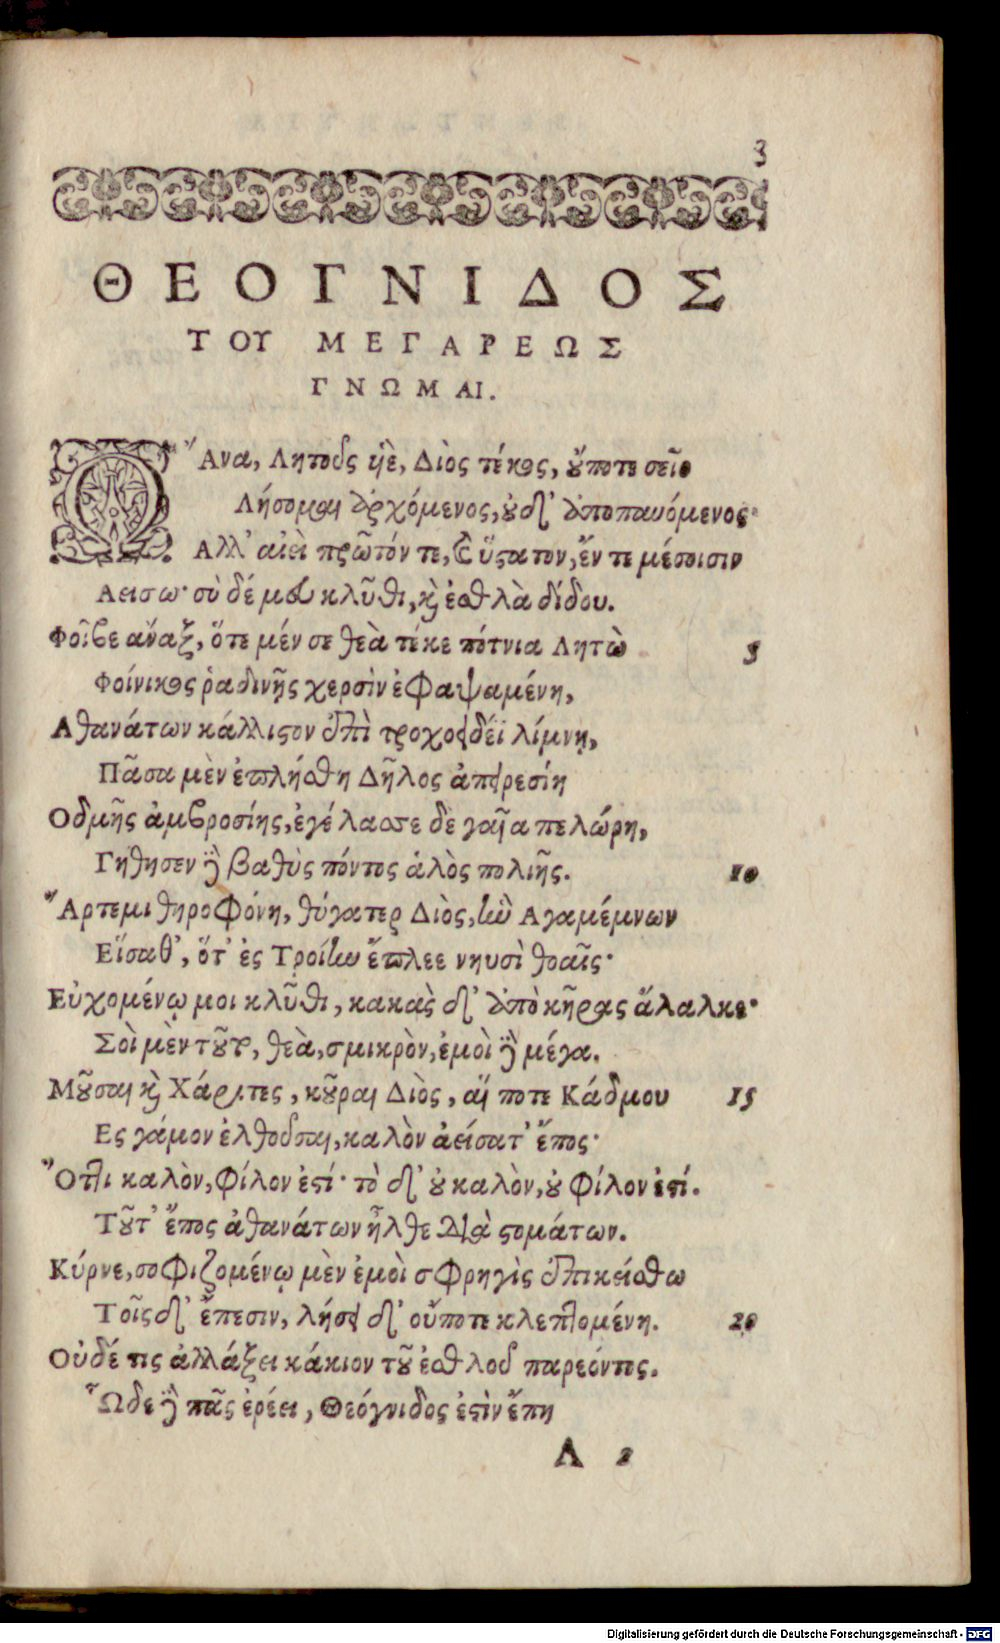 3
ΘΕΟΓΝΙΔΟΣ
ΤΟΥ ΜΕΓΑΡΕΩΣ
ΓΝΩΜΑΙ.
Ὦ Ἄνα, Λητοῦς ὑὲ, Διὸς τέκος, οὔποτε σεῖο
Λήσομαι ἀρχόμενος, οὐδ' ἀποπαυόμενος·
Αλλ' αἰεὶ πρῶτόν τε, καὶ ὕϛατον, ἔν τε μέσοισιν
Αεισω· σὺ δέ μευ κλῦθι, καὶ ἐσθλὰ δίδου.
Φοῖβε ἄναξ, ὅτε μέν σε θεὰ τέκε πότνια Λητὼ 5
Φοίνικος ῥαδινῆς χερσὶν ἐφαψαμένη,
Αθανάτων κάλλιϛον ἐπὶ τροχοειδέϊ λίμνῃ,
Πᾶσα μὲν ἐπλήσθη Δῆλος ἀπειρεσίη
Οδμῆς ἀμβροσίης, ἐγέλασσε δε γαῖα πελώρη,
Γηθησεν δὲ βαθὺς πόντος ἁλὸς πολιῆς. 10
Ἄρτεμι θηροφόνη, θύγατερ Διὸς, ἣν Αγαμέμνων
Εἵσαθ', ὅτ' ἐς Τροίην ἔπλεε νηυσὶ θοαῖς·
Εὐχομένῳ μοι κλῦθι, κακὰς δ' ἀπὸ κῆρας ἄλαλκε·
Σοὶ μὲν τοῦτο, θεὰ, σμικρὸν, ἐμοὶ δὲ μέγα.
Μοῦσαι καὶ Χάριτες, κοῦραι Διὸς, αἵ ποτε Κάδμου 15
Ες γάμον ἐλθοῦσαι, καλὸν ἀείσατ' ἔπος·
Ὅττι καλὸν, φίλον ἐϛί· τὸ δ' οὐ καλὸν, οὐ φίλον ἐϛί.
Τοῦτ' ἔπος ἀθανάτων ἦλθε διὰ ϛομάτων.
Κύρνε, σοφιζομένῳ μὲν ἐμοὶ σφρηγὶς ἐπικείσθω
Τοῖς δ' ἔπεσιν, λήσει δ' οὔποτε κλεπτομένη. 20
Οὐδέ τις ἀλλάξει κάκιον τοῦ ἐσθλοῦ παρεόντος.
Ὧδε δὲ πᾶς ἐρέει, Θεόγνιδος ἐϛὶν ἔπη
A 2
Digitalisierung gefördert durch die Deutsche Forschungsgemeinschaft - DFG